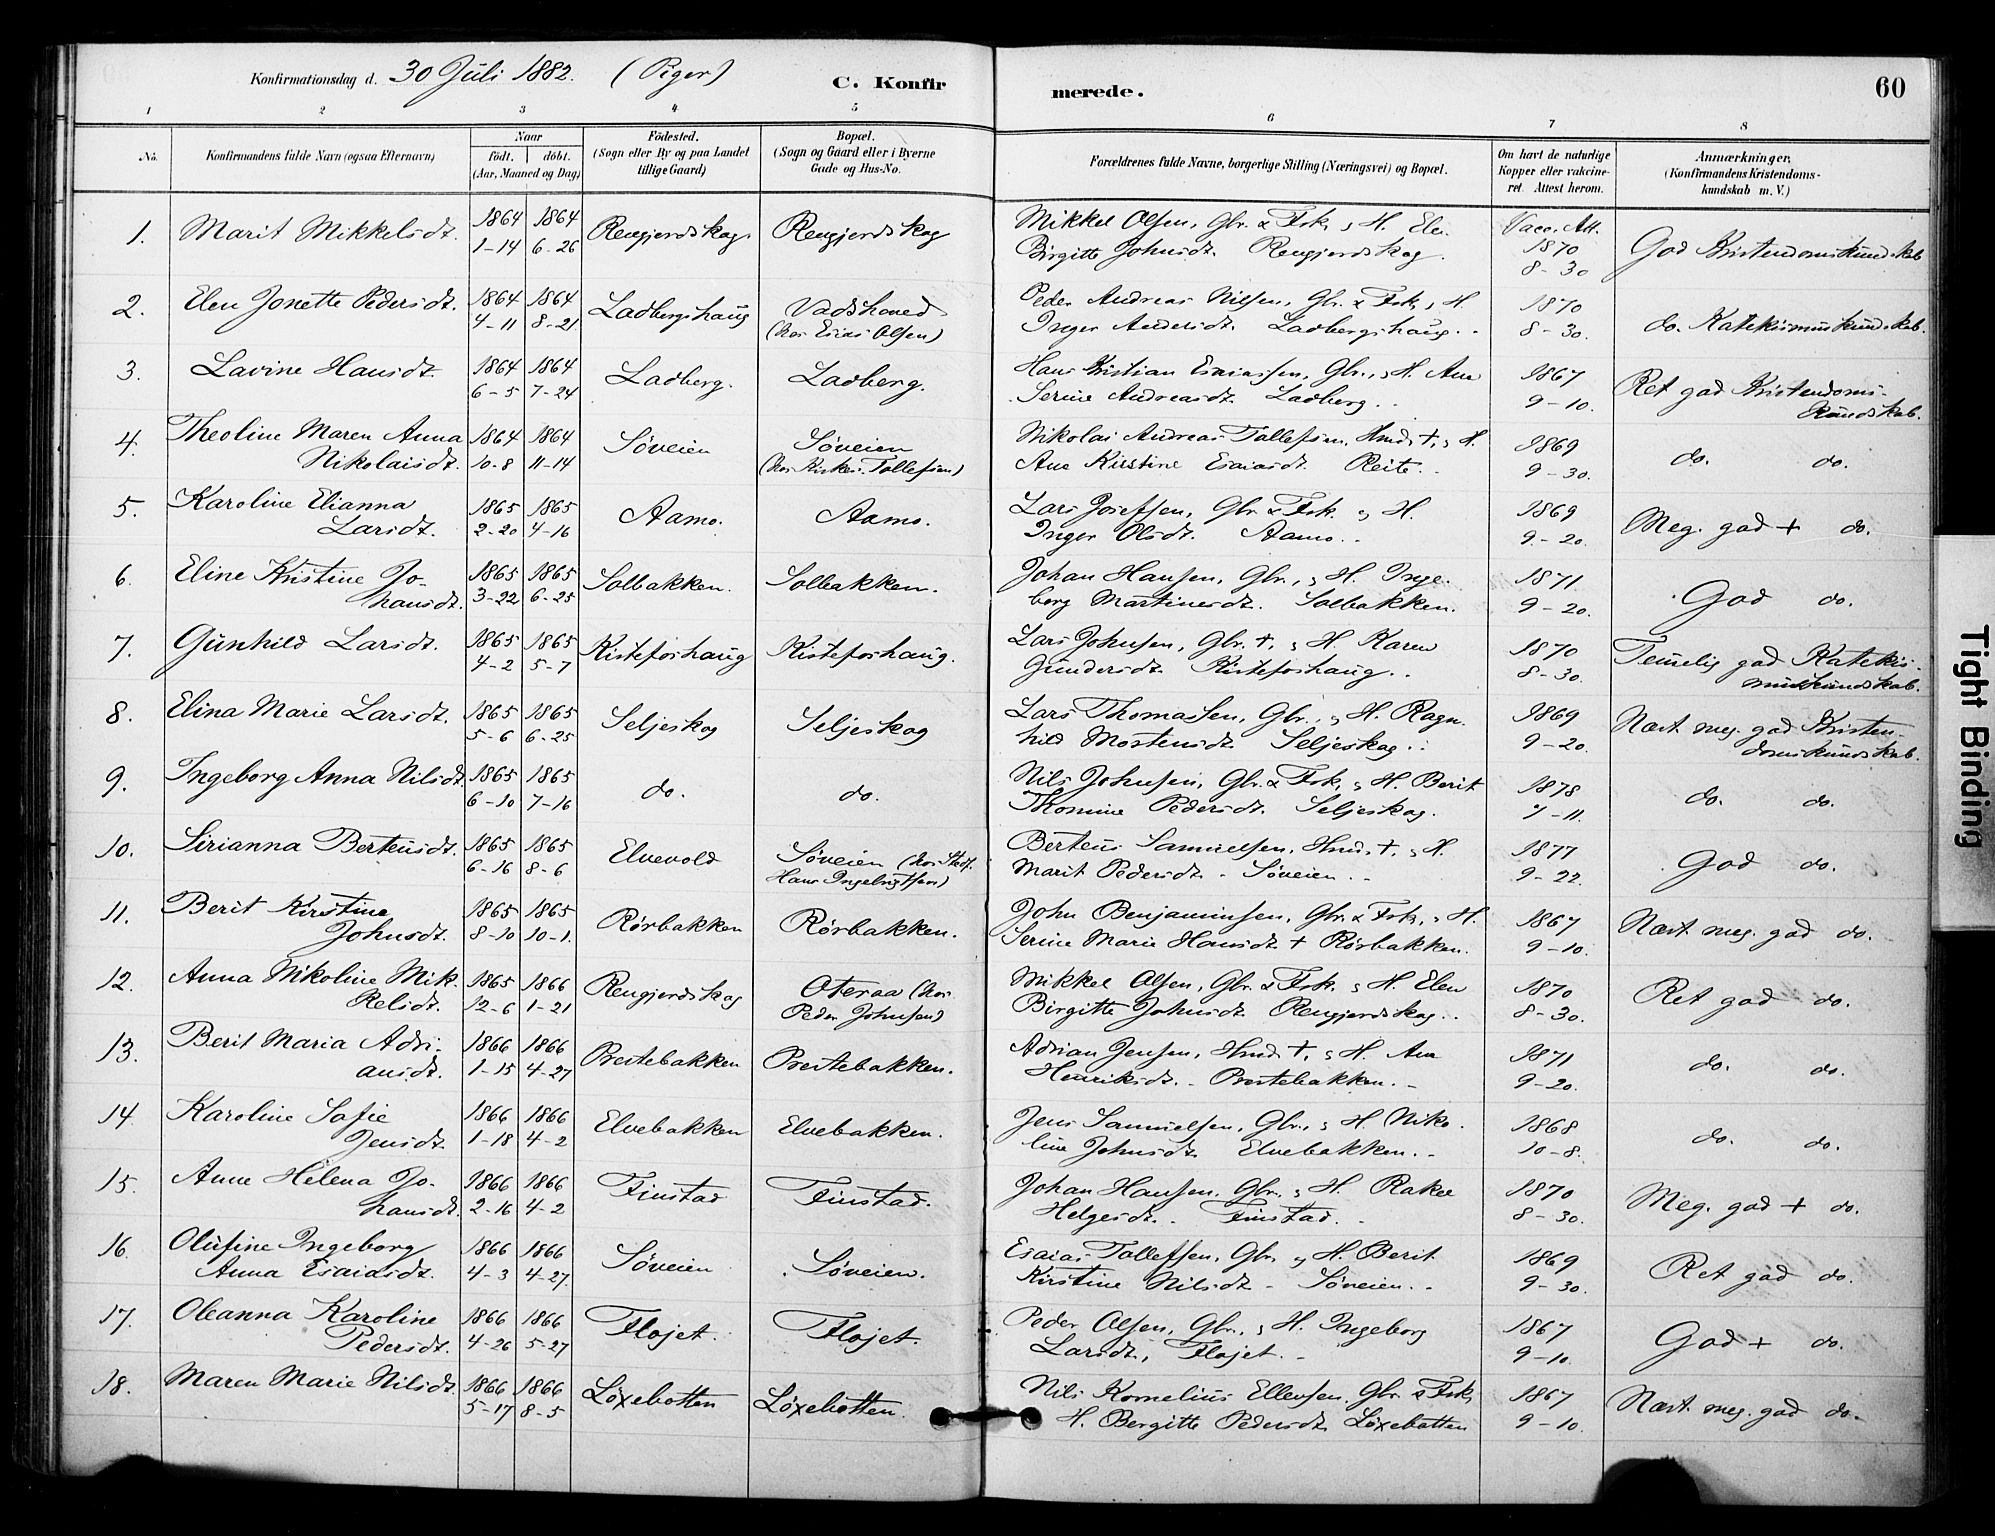 Konfirmationsdag d. 30 Juli 1882. (Piger) C. Konfir merede. 60
1 2 3 4 5 6 7 8
No. Konfirmandens fulde Navn (ogsaa Efternavn) Naar født. døbt. (Aar, Maaned og Dag) Födested. (Sogn eller By og paa Landet tillige Gaard) Bopæl. (Sogn og Gaard eller i Byerne Gade og Hus-No. Forældrenes fulde Navne, borgerlige Stilling (Næringsvei) og Bopæl. Om havt de naturlige Kopper eller vakcineret. Attest herom. Anmærkninger, (Konfirmandens Kristendomskundskab m. V.)
1. Marit Mikkelsdt. 1864 1864 Rengjordskog Rengjordskog Mikkel Olsen, Gbr. & Fsk. & H. Elen Vacc. Att. God Kristendomskundskab
1-14 6-26 Birgitte Johnsdt. Rengjordskog. 1870
8-30
2. Elen Jonette Pedersdt. 1864 1864 Ladbergshaug Vadshoved Peder Andreas Nilsen, Gbr. & Fsk, & H. 1870 do. Katekismuskundskab.
4-11 8-21 (hos Esias Olsen) Inger Andersdt. Ladbergshaug. 8-30.
3. Lavine Hansdt. 1864 1864 Ladberg. Ladberg. Hans Kristian Esaiassen, Gbr., & H. Ane 1867 Ret god Kristendoms-
6-5 7-24 Serine Andreasdt. Ladberg. 9-10. kundskab.
4. Theoline Maren Anna 1864 1864 Søveien Søveien Nikolai Andreas Tollefsen, Hmd. +, & H. 1869 do. do.
Nikolaisdt. 10-8 11-14 Ane Kirstine Esaiasdt. Reite. 9-30.
5. Karoline Elianna 1865 1865 Aamo. Aamo. Lars Josefsen, Gbr. & Fsk. & H. 1869 Meg. god + do.
Larsdt. 2-20 4-16 Inger Olsdt. Aamo. 9-20.
6. Eline Kristine Jo- 1865 1865 Solbakken. Solbakken. Johan Hansen, Gbr., & H. Inge- 1871 God do.
hansdt. 3-22 6-25 borg Martinesdt. Solbakken. 9-20.
7. Gunhild Larsdt. 1865 1865 Kisteforshaug Kisteforshaug. Lars Johnsen, Gbr. +, & H. Karen 1870 Temelig god Katekis-
4-2 5-7 Gundersdt. Kisteforshaug. 8-30. muskundskab.
8. Elina Marie Larsdt. 1865 1865 Seljeskog Seljeskog Lars Thomassen, Gbr., & H. Ragn- 1869 Næst meg. god Kristen-
5-6 6-25 hild Mortensdt. Seljeskog. 9-20. domskundskab.
9. Ingeborg Anna Nilsdt. 1865 1865 do. do. Nils Johnsen, Gbr. & Fsk, & H. Berit 1878 do. do.
6-10 7-16 Thomine Pedersdt. Seljeskog. 7-11.
10. Sirianna Berteusdt. 1865 1865 Elvevold Søveien (hos Stedf. Berteus Samuelsen, Hmd. +, & H. 1877 God do.
6-16 8-6 Hans Ingebrigtsen) Marit Pedersdt. - Søveien. 9-22.
11. Berit Kirstine 1865 1865 Rørbakken Rørbakken. John Benjaminsen, Gbr. & Fsk, & H. 1867 Næst meg. god do.
Johnsdt. 8-10 10-1. Serine Marie Hansdt + Rørbakken. 9-10.
12. Anna Nikoline Mik- 1865 1866 Rengjordskog Oteraa (hos Mikkel Olsen, Gbr. & Fsk. & H. Elen 1870 Ret god do.
kelsdt. 12-6 1-21 Peder Johnsen) Birgitte Johnsdt. Rengjordskog. 8-30.
13. Berit Maria Adri- 1866 1866 Prestebakken Prestebakken. Adrian Jensen, Hmd. +, & H. Ane 1871 do. do.
ansdt. 1-15 4-27 Henriksdt. - Prestebakken. - 9-20.
14. Karoline Sofie 1866 1866 Elvebakken Elvebakken. Jens Samuelsen, Gbr., & H. Niko- 1868 do. do.
Jensdt. 1-18 4-2 line Johnsdt. Elvebakken. - 10-8.
15. Anne Helena Jo- 1866 1866 Finstad Finstad. Johan Hansen, Gbr., & H. Rakel 1870 Meg. god + do.
hansdt. 2-16 4-2 Helgesdt. - Finstad. - 8-30.
16. Olufine Ingeborg 1866 1866 Søveien Søveien. Esaias Tollefsen, Gbr. & H. Berit 1869 Ret god do.
Anna Esaiasdt. 4-3 4-27. Kirstine Nilsdt - Søveien. - 9-30.
17. Oleanna Karoline 1866 1866 Fløjet. Fløjet. Peder Olsen, Gbr., & H. Ingeborg 1867 God + do.
Pedersdt. 4-26 5-27 Larsdt, Fløjet. - 9-10.
18. Maren Marie Nilsdt. 1866 1866 Løxebotten Løxebotten. Nils Kornelius Ellevsen, Gbr & Fsk, 1867 Næst meg. god do.
5-17 8-5 H. Bergitte Pedersdt, Løxebotten 9-10.
Tight Binding